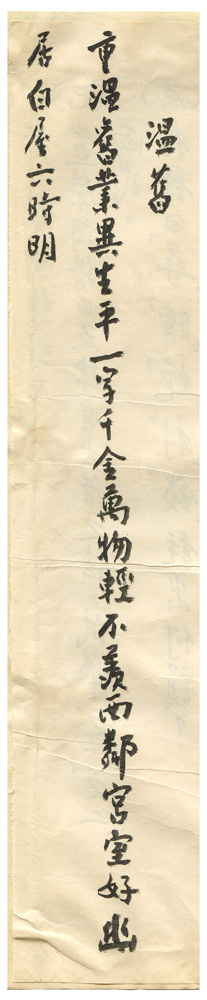 溫舊
重溫舊業異生平一字千金萬物輕不羨西鄰宮室好幽
居白屋六時明